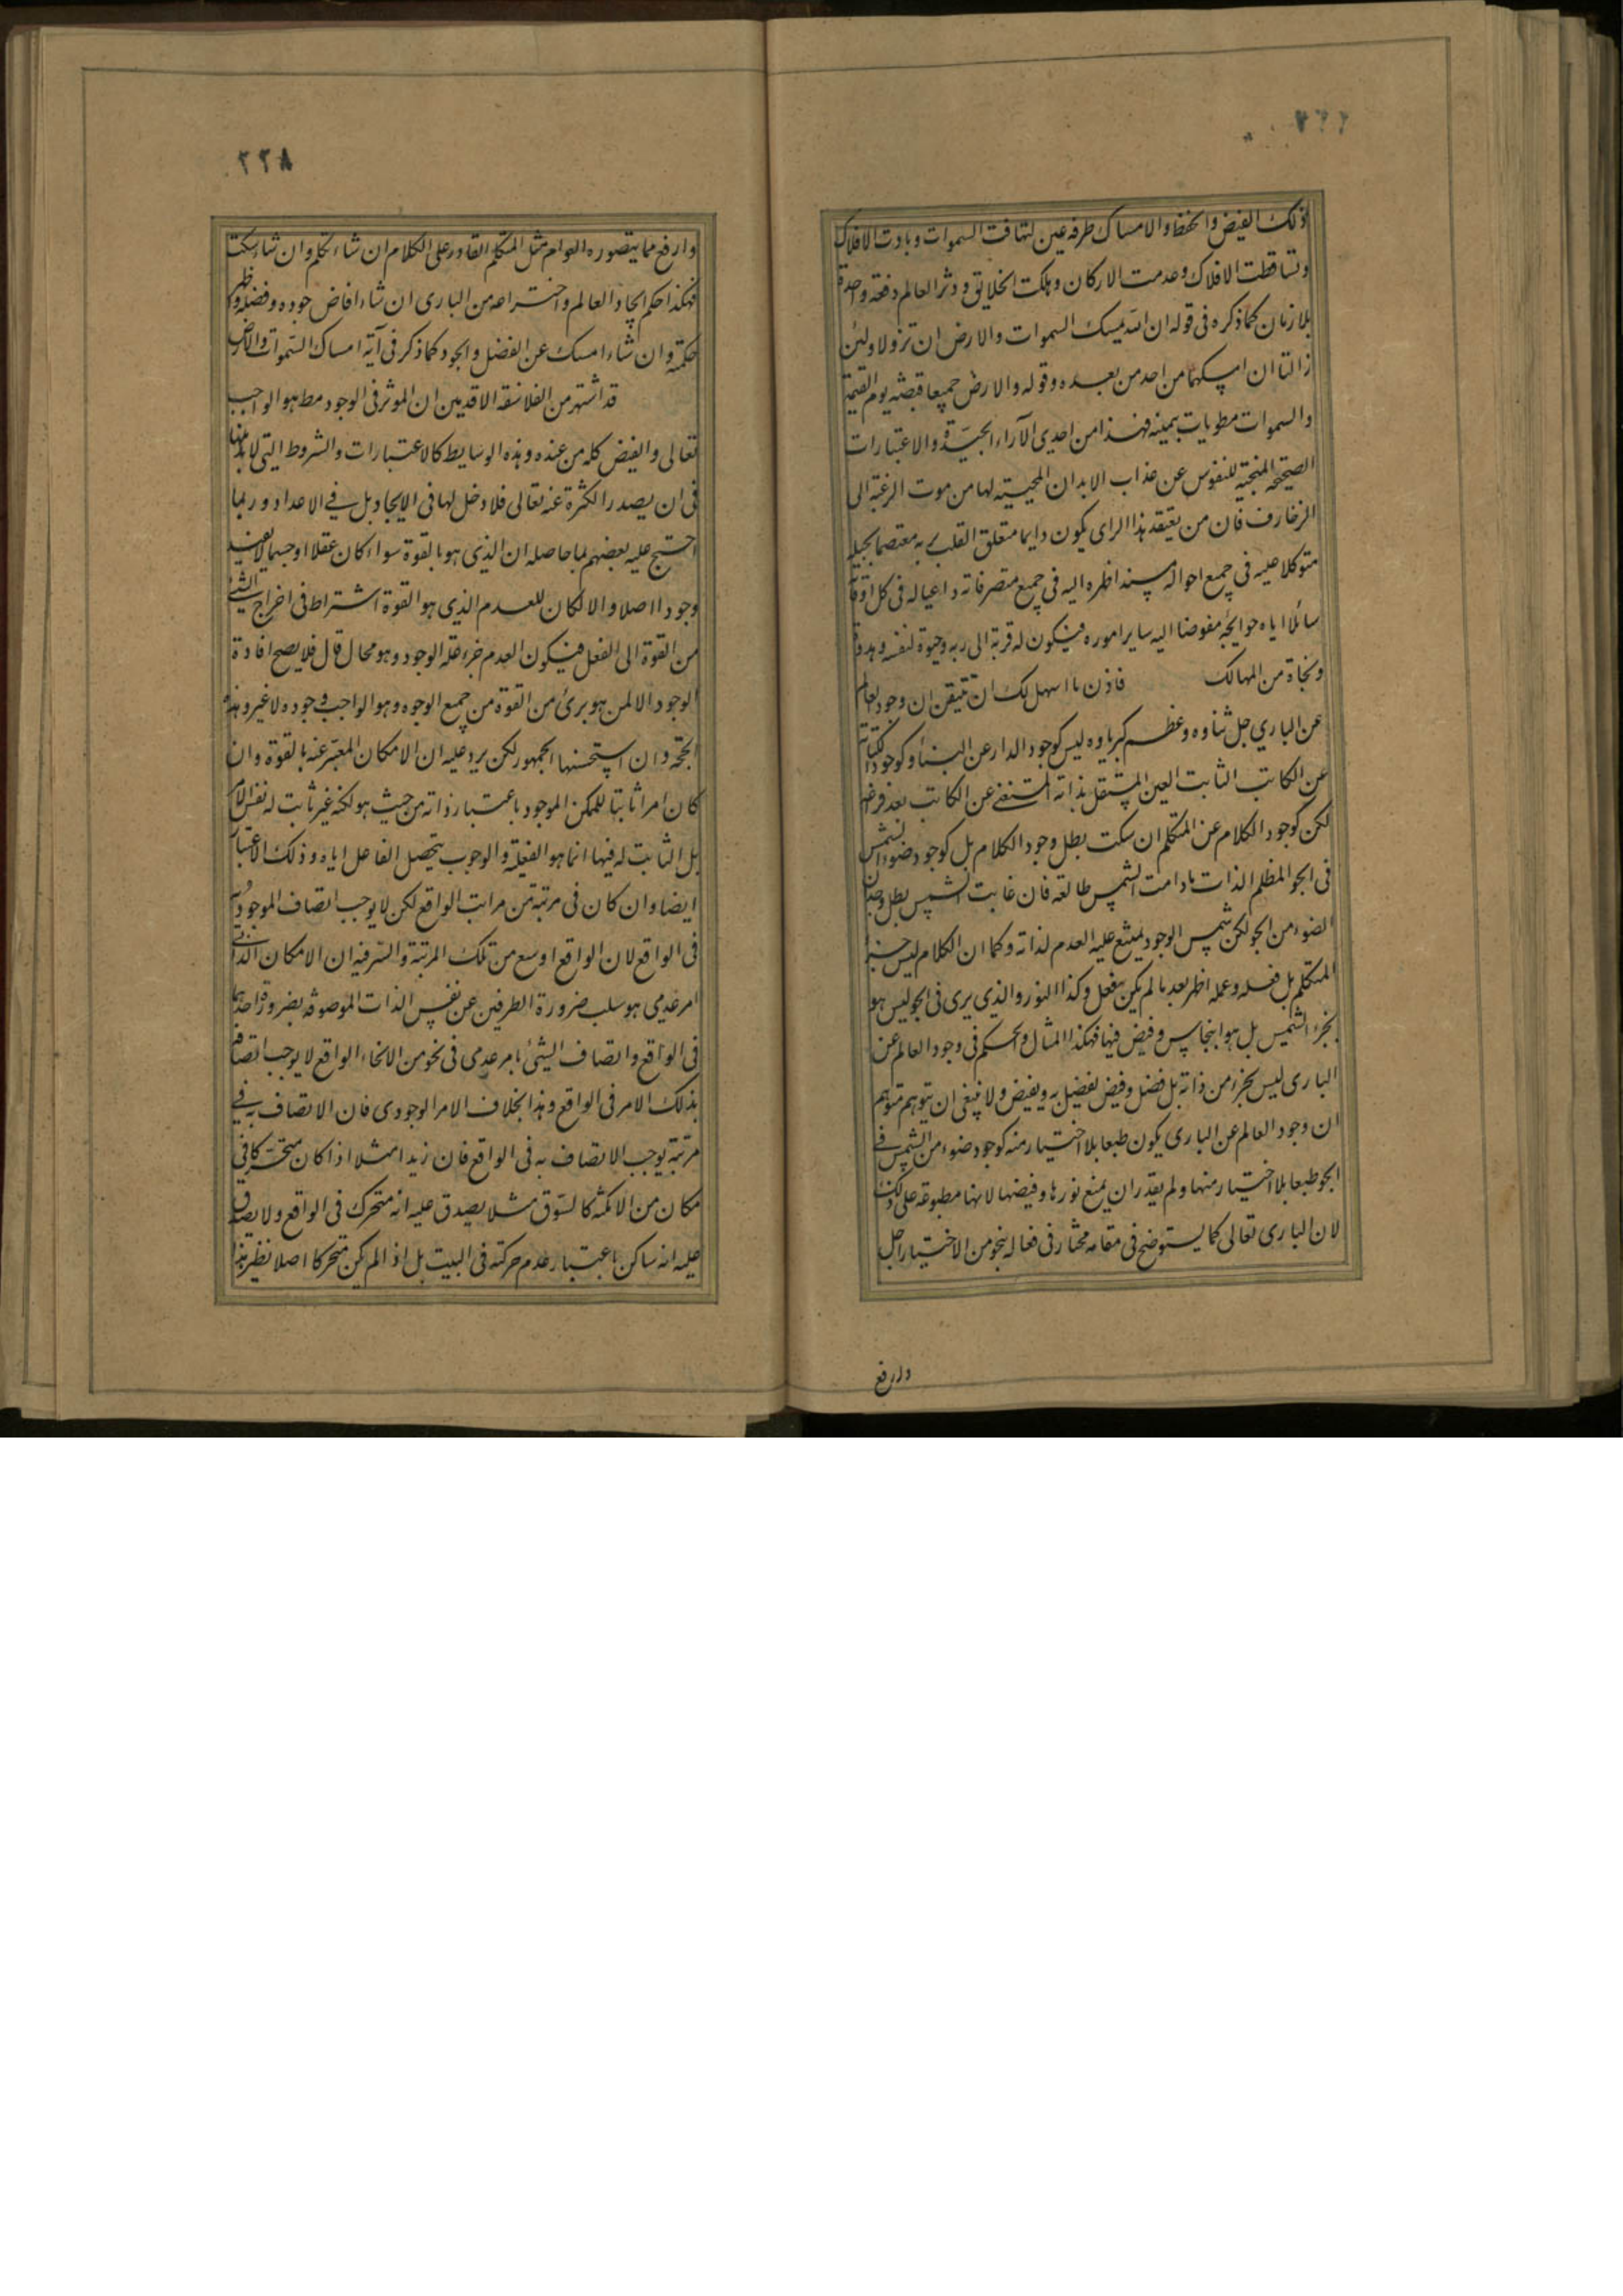 ذلك الفيض والحفظ والامساك طرفة عين لتهافت السموات وبادت الافلاك
وتساقطت الافلاك وعدمت الاركان وهلكت الخلايق ودثر العالم دفعة واحدة
بلا زمان كما ذكره فى قوله ان الله يمسك السموات والارض ان تزولا ولئن
زالتا ان امسكهما من احد من بعده وقوله والارض جميعا قبضته يوم القيمة
والسموات مطويات بيمينه فهذا من احدى الآراء الجيدة والاعتبارات
الصحيحة المنجية للنفوس عن عذاب الابدان المحيية لها من موت الرغبة الى
الزخارف فان من يعتقد هذا الراى يكون دايما متعلق القلب به معتصما بحبله
متوكلا عليه فى جميع احواله مسندا ظهره اليه فى جميع متصرفاته داعيا له فى كل اوقاته
سائلا اياه حوايجه مفوضا اليه ساير اموره فيكون له قربة الى ربه وحيوة لنفسه وهدو
ونجاة من المهالك فاذن ما اسهل لك ان تتيقن ان وجود العالم
عن الباري جل ثناوه وعظم كبرياوه ليس كوجود الدار عن البناء وكوجود الكتابة
عن الكاتب الثابت العين المستقل بذاته المستغنى عن الكاتب بعد فراغه
لكن كوجود الكلام عن المتكلم ان سكت بطل وجود الكلام بل كوجود ضوء الشمس
فى الجو المظلم الذات ما دامت الشمس طالعة فان غابت الشمس بطل وجدان
الضوء من الجو لكن شمس الوجود يمتنع عليه العدم لذاته وكما ان الكلام ليس جزء
المتكلم بل فعله وعمله اظهر بعد ما لم يكن يفعل وكذا النور والذى يرى فى الجو ليس هو
بجزء الشمس بل هو انبجاس وفيض فيها فهكذا المثال والحكم فى وجود العالم عن
البارى ليس بجزء من ذاته بل فضل وفيض يفضيل به ويفيض ولا ينبغى ان يتوهم متوهم
ان وجود العالم عن البارى يكون طبعا بلا اختيار منه كوجود ضوء من الشمس فى
الجو طبعا بلا اختيار منها ولم يقدر ان يمنع نورها وفيضها لانها مطبوعة على ذلك
لان البارى تعالى كما يستوضح فى مقامه مختار فى فعاله بنحو من الاختيار اجل
وارفع
٢٢٨
وارفع مما يتصوره العوام مثل المتكلم القادر على الكلام ان شاء تكلم وان شاء سكت
فهكذا حكم ايجاد العالم واختراعه من البارى ان شاء افاض جوده وفضله واظهر
حكمته وان شاء امسك عن الفضل والجود كما ذكر فى آية امساك السموات والارض
قد اشتهر من الفلاسفة الاقدمين ان الموثر فى الوجود مط هو الواجب
تعالى والفيض كله من عنده وهذه الوسايط كالاعتبارات والشروط التى لا بد منها
فى ان يصدر الكثرة عنه تعالى فلا دخل لها فى الايجاد بل فى الاعداد وربما
احتج عليه بعضهم بما حاصله ان الذى هو بالقوة سواء كان عقلا او جسما لا يفيد
وجودا اصلا والا لكان للعدم الذى هو القوة اشتراط فى اخراج الشئ
من القوة الى الفعل فيكون العدم جزء علة الوجود وهو محال قال فلا يصح افادة
الوجود الا لمن هو برئ من القوة من جميع الوجوه وهو الواجب وجوده لا غير وهذه
الحجة وان استحسنها الجمهور لكن يرد عليه ان الامكان المعبر عنه بالقوة وان
كان امرا ثابتا للممكن الموجود باعتبار ذاته من حيث هو لكنه غير ثابت له نفس الامر
بل الثابت له فيها انما هو الفعلية والوجوب بتحصيل الفاعل اياه وذلك الاعتبار
ايضا وان كان فى مرتبة من مراتب الواقع لكن لا يوجب اتصاف الموجود به
فى الواقع لان الواقع اوسع من تلك المرتبة والسر فيه ان الامكان الذاتى
امر عدمى هو سلب ضرورة الطرفين عن نفس الذات الموصوفة بضرورة احدهما
فى الواقع واتصاف الشئ بامر عدمى فى نحو من الانحاء الواقع لا يوجب اتصافه
بذلك الامر فى الواقع وهذا بخلاف الامر الوجودى فان الاتصاف به فى
مرتبة يوجب الاتصاف به فى الواقع فان زيدا مثلا اذا كان متحركا فى
مكان من الامكنة كالسوق مثلا يصدق عليه انه متحرك فى الواقع ولا يصدق
عليه انه ساكن باعتبار عدم حركته فى البيت بل اذا لم يكن متحركا اصلا نظير هذا